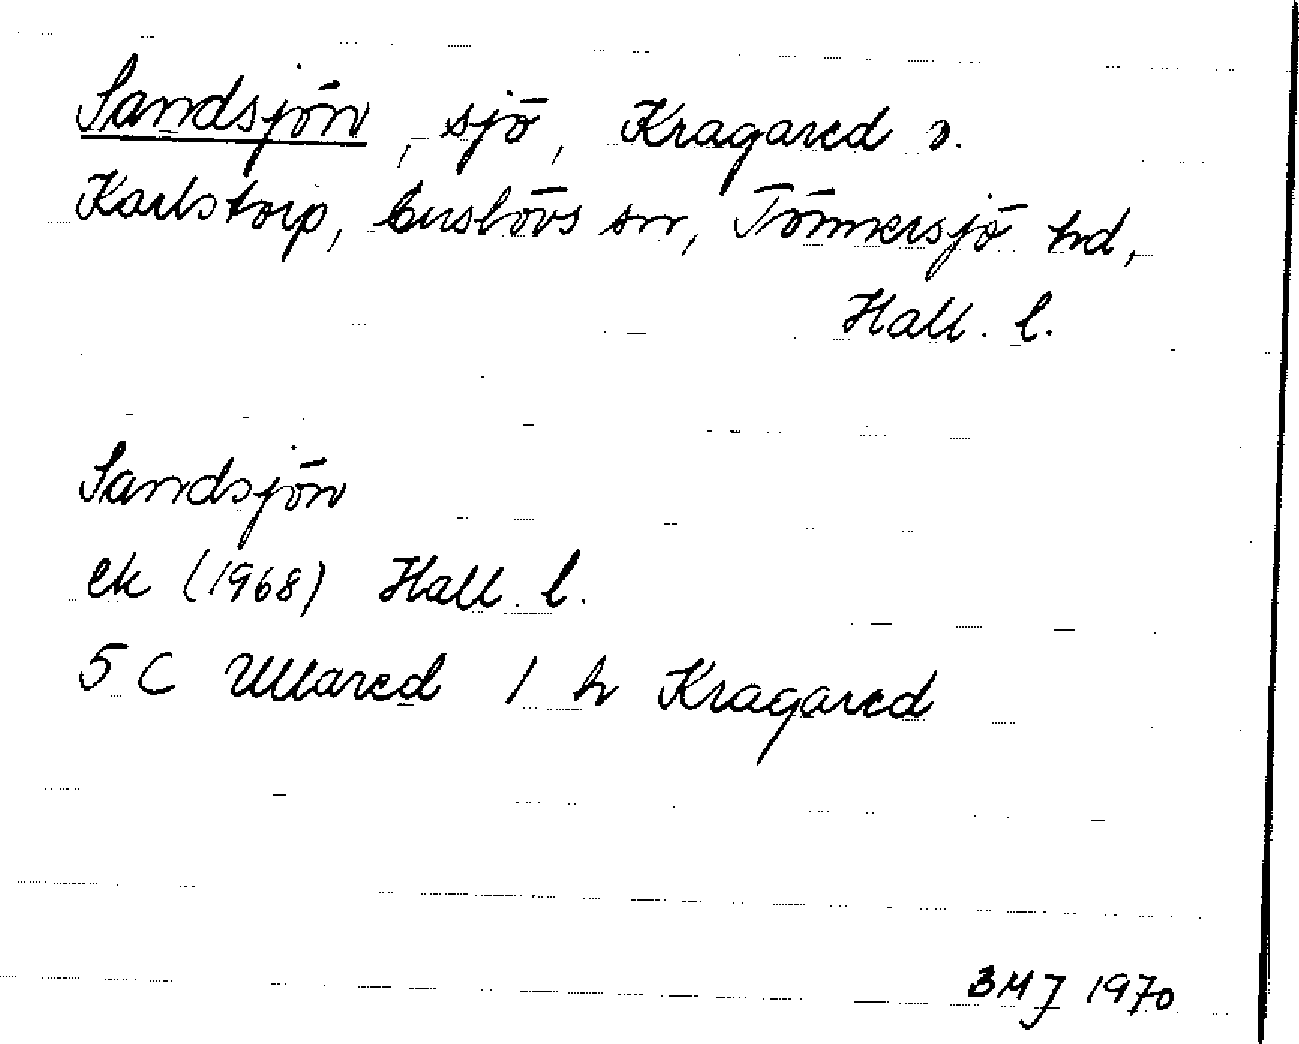 Sandsjön, sjö, Kragared o.
Karlstorp, Enslövs sn, Tönnersjö hd,
Hall. l.
Sandsjön
ek (1968) Hall. l.
5 C Ullared 1 h Kragared
BMJ 1970